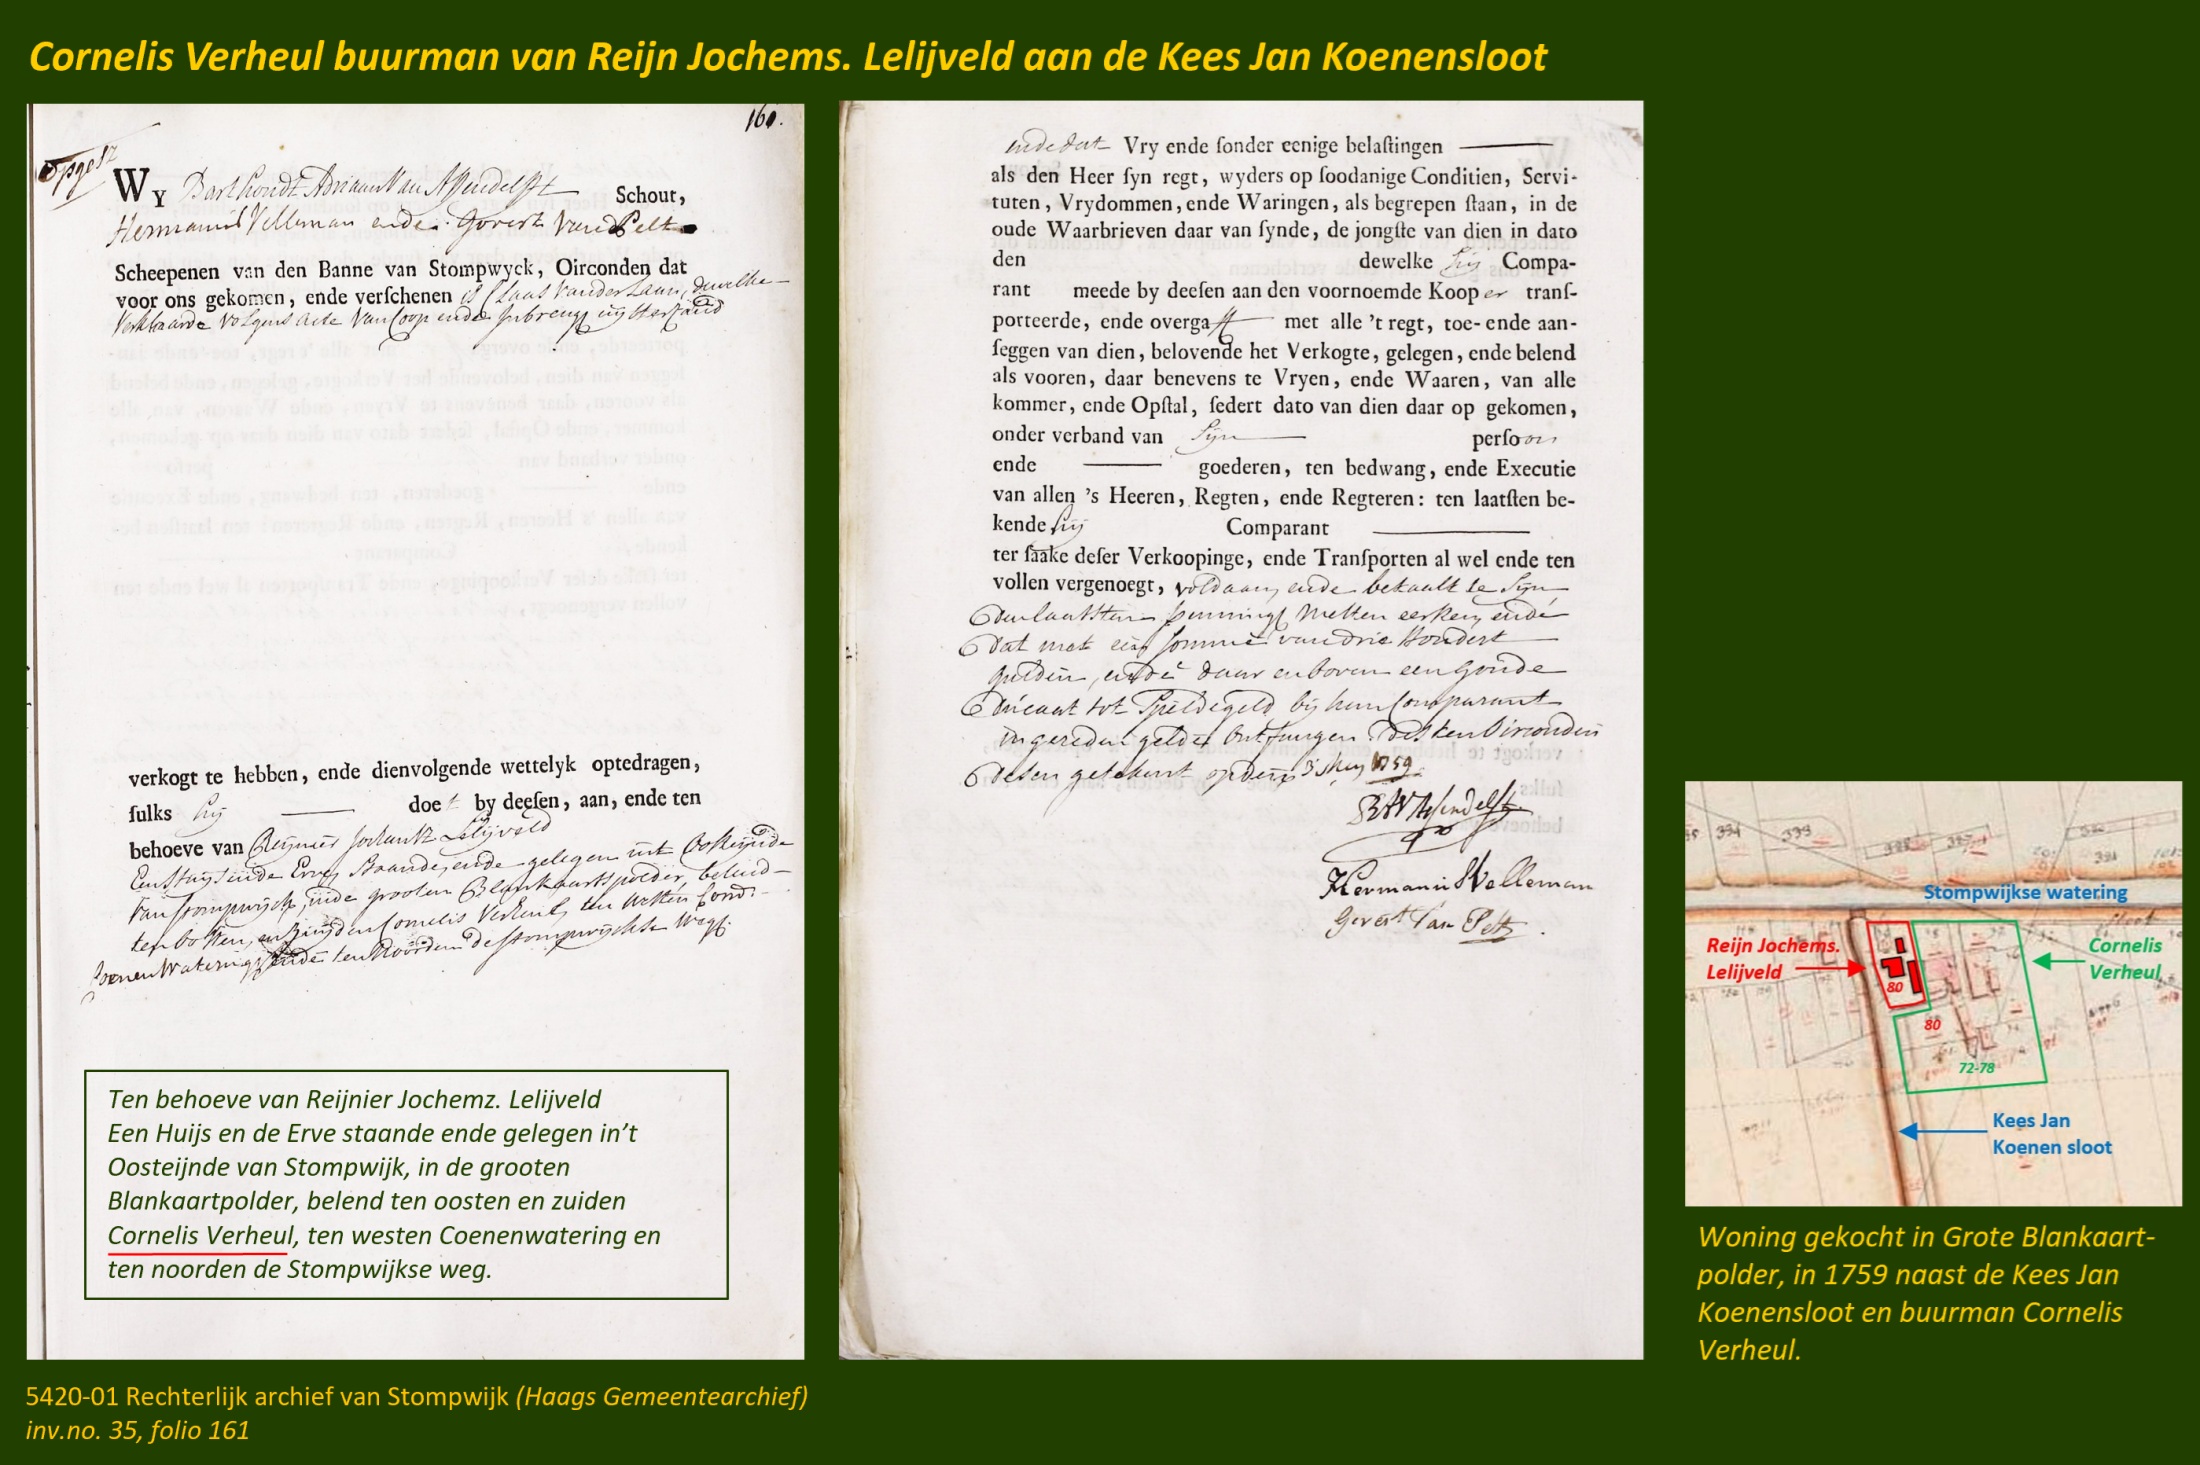 Cornelis Verheul buurman van Reijn Jochems. Lelijveld aan de Kees Jan Koenensloot
Wy Barthoudt Adriaan Van Assendelft Schout,
Hermanus Velleman ende Govert Van Pelt
Scheepenen van den Banne van Stompwyck, Oirconden dat
voor ons gekomen, ende verſchenen is Claas Vander Laan, dewelke
verklaarde volgens acte van Coop ende
verkogt te hebben, ende dienvolgende wettelyk optedragen,
ſulks hij doet by deeſen, aan, ende ten
behoeve van Reijnier Lelijveld
Een Huijs ende Erve, staande, ende gelegen in't Oosteijnde
van Stompwijck, inde grooten Blankaartspolder, belend
ten oosten, en Zuijden Cornelis Verheul, ten westen
Coenen Watering, ende ten Noorden de Stompwijckse Weg.
Ten behoeve van Reijnier Jochemz. Lelijveld
Een Huijs en de Erve staande ende gelegen in’t
Oosteijnde van Stompwijk, in de grooten
Blankaartpolder, belend ten oosten en zuiden
Cornelis Verheul, ten westen Coenenwatering en
ten noorden de Stompwijkse weg.
5420-01 Rechterlijk archief van Stompwijk (Haags Gemeentearchief)
inv.no. 35, folio 161
ende dat Vry ende ſonder eenige belaſtingen
als den Heer ſyn regt, wyders op ſoodanige Conditien, Servi-
tuten, Vrydommen, ende Waringen, als begrepen ſtaan, in de
oude Waarbrieven daar van ſynde, de jongſte van dien in dato
den dewelke hij Compa-
rant meede by deeſen aan den voornoemde Kooper tranſ-
porteerde, ende overgaff met alle 't regt, toe- ende aan-
ſeggen van dien, belovende het Verkogte, gelegen, ende belend
als vooren, daar benevens te Vryen, ende Waaren, van alle
kommer, ende Opſtal, ſedert dato van dien daar op gekomen,
onder verband van Sijn perſoon
ende goederen, ten bedwang, ende Executie
van allen 's Heeren, Regten, ende Regteren: ten laatſten be-
kende hij Comparant
ter ſaake deſer Verkoopinge, ende Tranſporten al wel ende ten
vollen vergenoegt, voldaan, ende betaalt te Sijn
den laatsten penning metten eersten, ende
dat met een somme van drie Hondert
gulden, ende daar en boven een goude
Ducaat tot Speldegeld bij hem Comparant
in gereden gelde Ontfangen. Des t'en Oirconden
desen getekent op den 3 Meij 1759.
Hermanus Velleman
Govert Van Pelt
334
339
391
Stompwijkse watering
Reijn Jochems.
Lelijveld
Cornelis
Verheul
80
80
72-78
Kees Jan
Koenen sloot
Woning gekocht in Grote Blankaart-
polder, in 1759 naast de Kees Jan
Koenensloot en buurman Cornelis
Verheul.